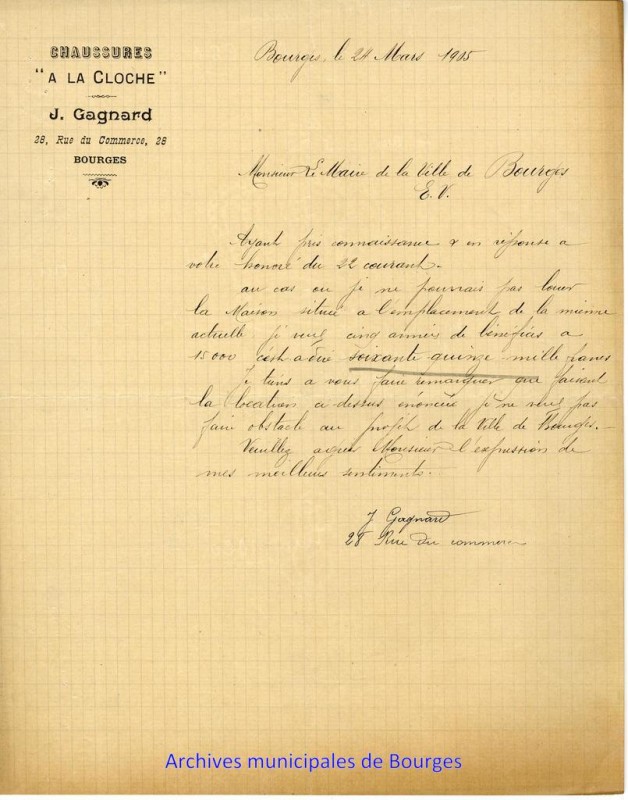 CHAUSSURES
"A LA CLOCHE"
J. Gagnard
28, Rue du Commerce, 28
BOURGES
Bourges, le 24 Mars 1905
Monsieur Le Maire de la Ville de Bourges
E. V.
Ayant pris connaissance & en réponse a
votre honoré du 22 courant.
au cas ou je ne pourrais pas louer
la Maison situé a l'emplacement de la mienne
actuelle je veux cinq années de bénéfices a
15000 c'est a dire soixante quinze mille francs
Je tiens a vous faire remarquer faisant
la location ci dessus énoncée je ne veux pas
faire obstacle au profit de la Ville de Bourges.-
Veuillez agréer Monsieur l'expression de
mes meilleurs sentiments.
J Gagnard
28 Rue du commerce
Archives municipales de Bourges